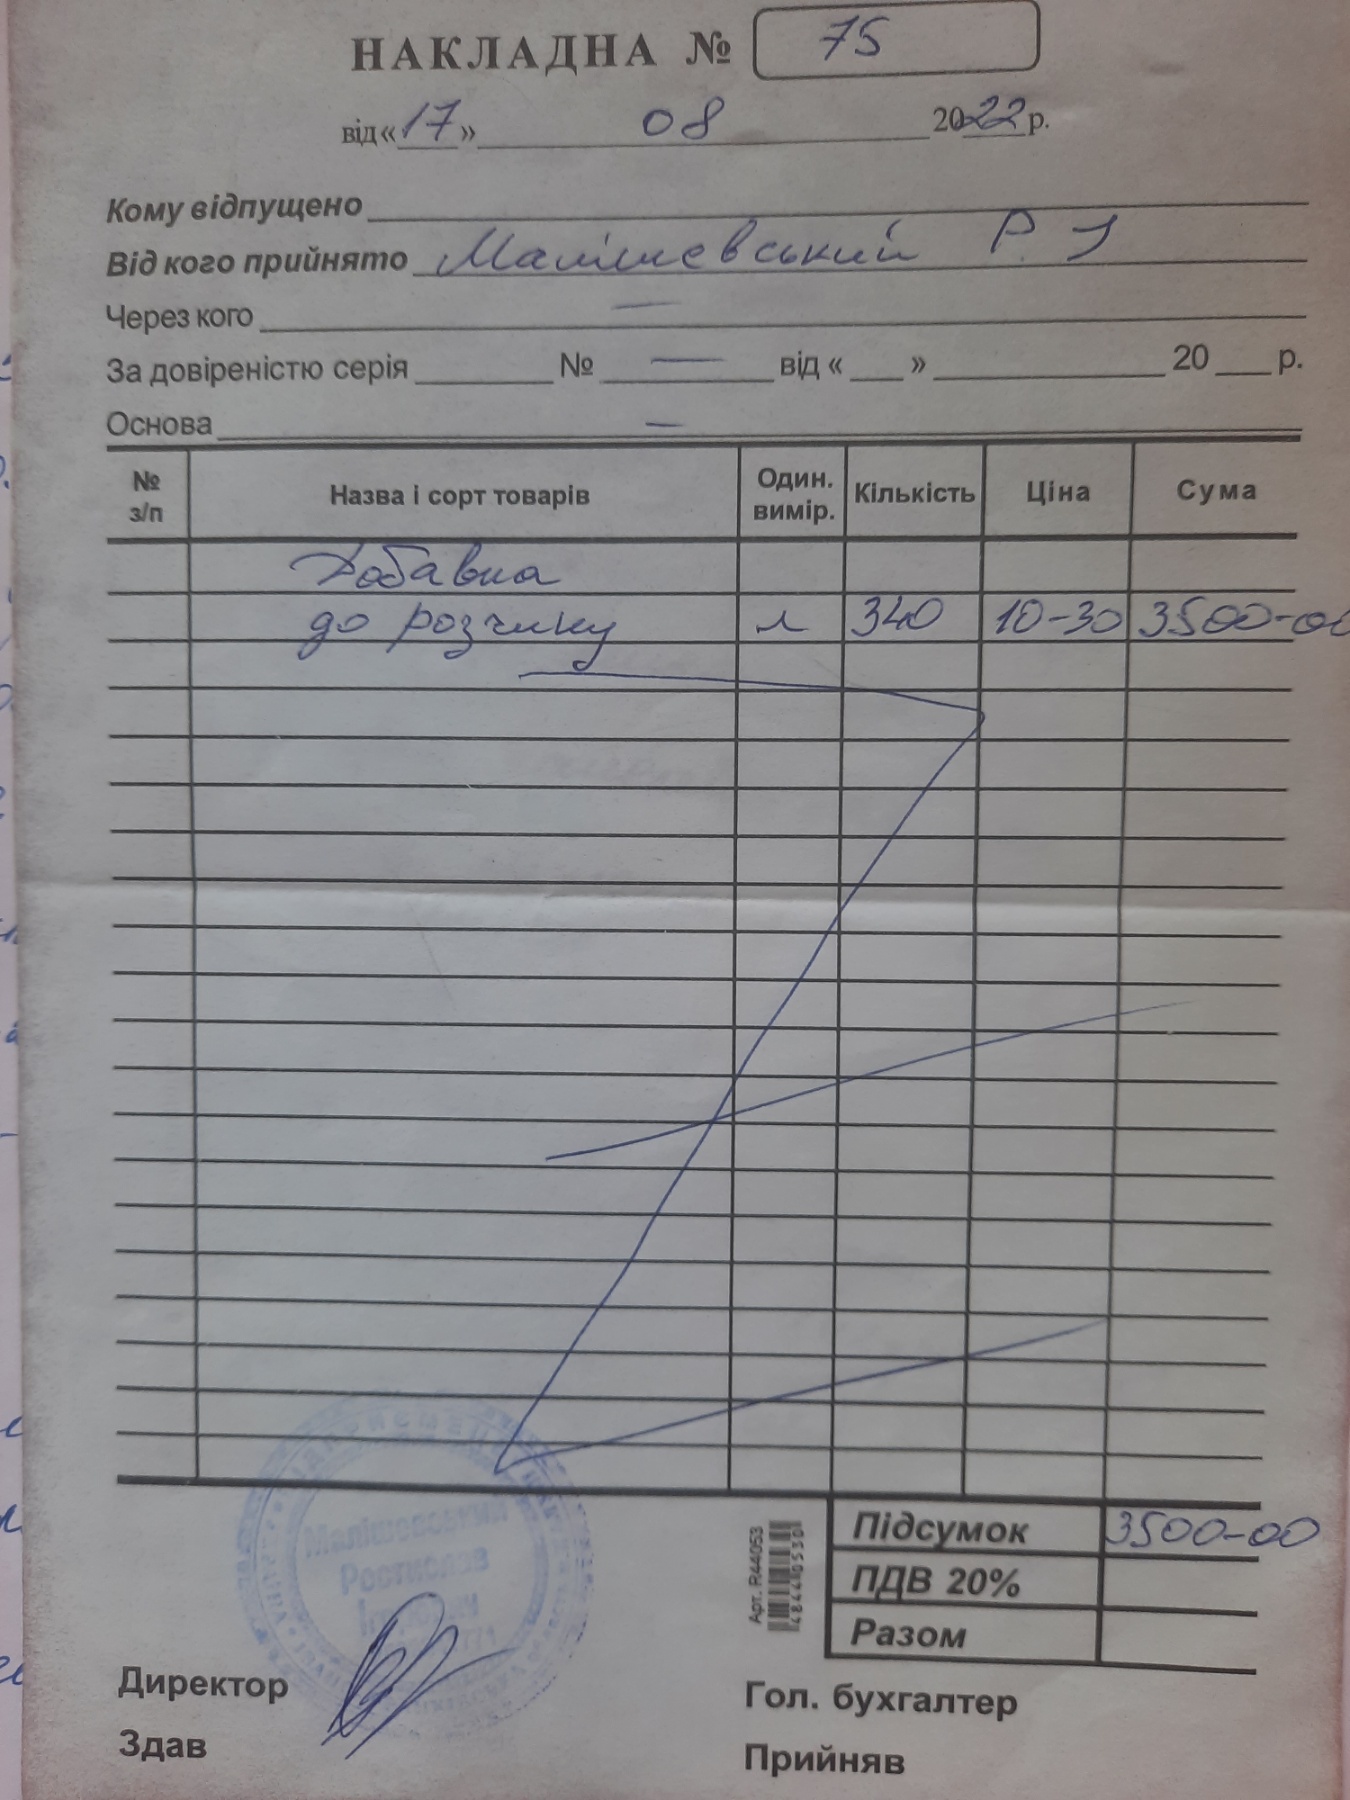 НАКЛАДНА № 75
від «17» 08 2022 р.
Кому відпущено
Від кого прийнято Малішевський Р. І
Через кого —
За довіреністю серія № — від « » 20 р.
Основа —
№ з/п Назва і сорт товарів Один. вимір. Кількість Ціна Сума
Добавка
до розчину л 340 10-30 3500-00
Підсумок 3500-00
ПДВ 20%
Разом
Арт. R44053
Малішевський
Ростислав
Директор
Гол. бухгалтер
Здав
Прийняв